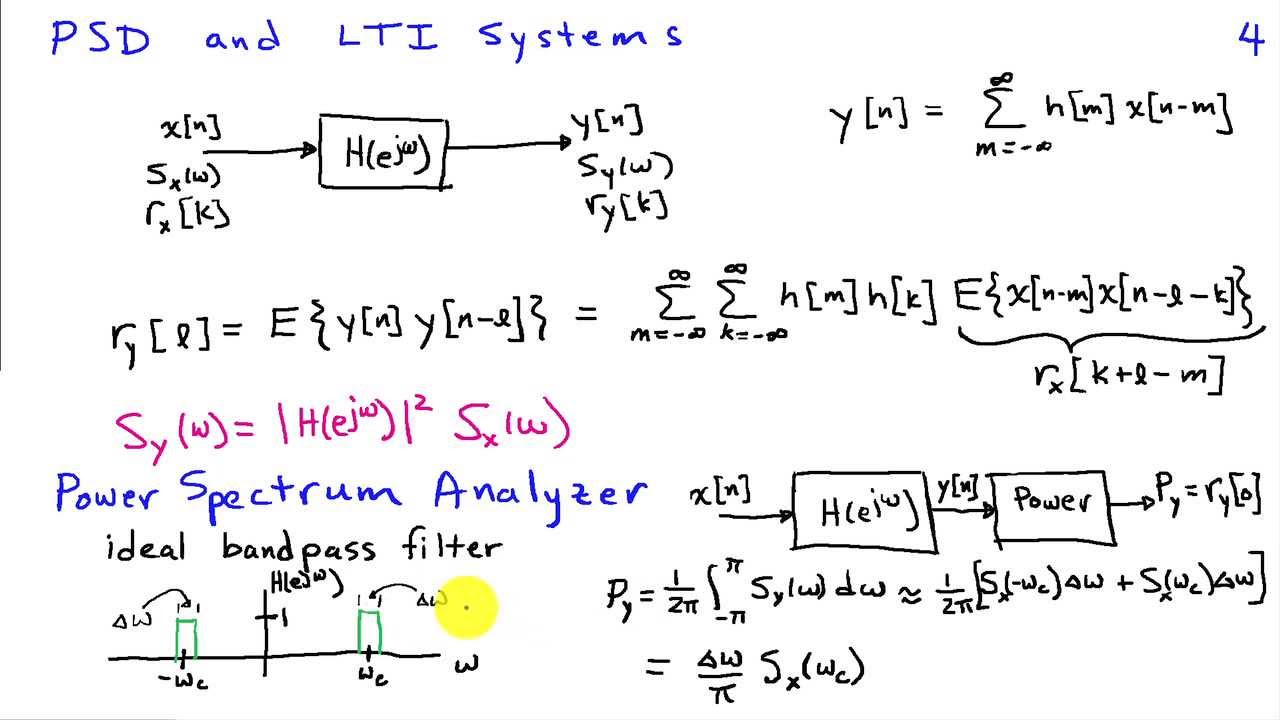 PSD and LTI Systems 4
x[n] H(e^{jω}) y[n]
S_x(ω) S_y(ω)
r_x[k] r_y[k]
y[n] = \sum_{m=-∞}^{∞} h[m] x[n-m]
r_y[ℓ] = E{y[n] y[n-ℓ]} = \sum_{m=-∞}^{∞} \sum_{k=-∞}^{∞} h[m] h[k] E{x[n-m]x[n-ℓ-k]}
r_x[k+ℓ-m]
S_y(ω) = |H(e^{jω})|^2 S_x(ω)
Power Spectrum Analyzer
x[n] H(e^{jω}) y[n] Power P_y = r_y[0]
ideal bandpass filter
H(e^{jω})
Δω 1 Δω
-ω_c ω_c ω
P_y = \frac{1}{2π} \int_{-π}^{π} S_y(ω) dω ≈ \frac{1}{2π} [S_x(-ω_c)Δω + S_x(ω_c)Δω]
= \frac{Δω}{π} S_x(ω_c)